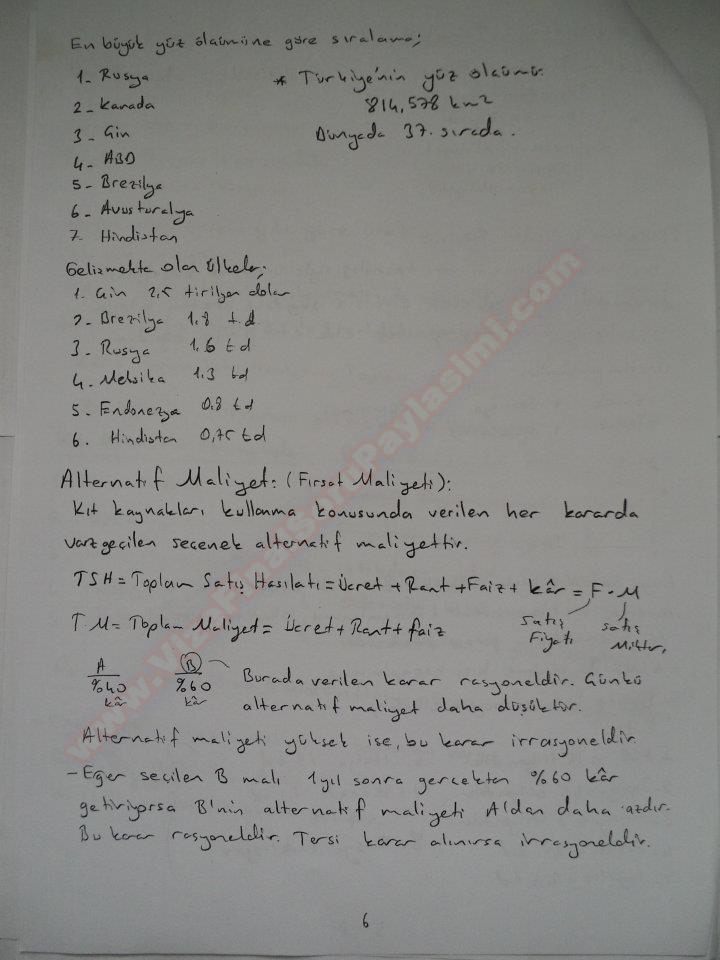 En büyük yüz ölçümüne göre sıralama;
1- Rusya
2- Kanada
3- Çin
4- ABD
5- Brezilya
6- Avusturalya
7- Hindistan
* Türkiye'nin yüz ölçümü:
814,578 km2
Dünyada 37. sırada.
Gelişmekte olan ülkeler;
1. Çin 2,5 tirilyon dolar
2- Brezilya 1.8 t.d
3- Rusya 1.6 td
4- Meksika 1.3 td
5- Endonezya 0.8 td
6. Hindistan 0,75 td
Alternatif Maliyet: (Fırsat Maliyeti):
Kıt kaynakları kullanma konusunda verilen her kararda
vazgeçilen seçenek alternatif maliyettir.
TSH = Toplam Satış Hasılatı = Ücret + Rant + Faiz + kâr = F.M
Satış Fiyatı
satış Miktarı
T.M = Toplam Maliyet = Ücret + Rant + faiz
A
%40
kâr
B
%60
kâr
Burada verilen karar rasyoneldir. Çünkü
alternatif maliyet daha düşüktür.
Alternatif maliyeti yüksek ise, bu karar irrasyoneldir.
- Eğer seçilen B malı 1 yıl sonra gerçekten %60 kâr
getiriyorsa B'nin alternatif maliyeti A'dan daha azdır.
Bu karar rasyoneldir. Tersi karar alınırsa irrasyoneldir.
6
www.VizeFinalSoruPaylasimi.com